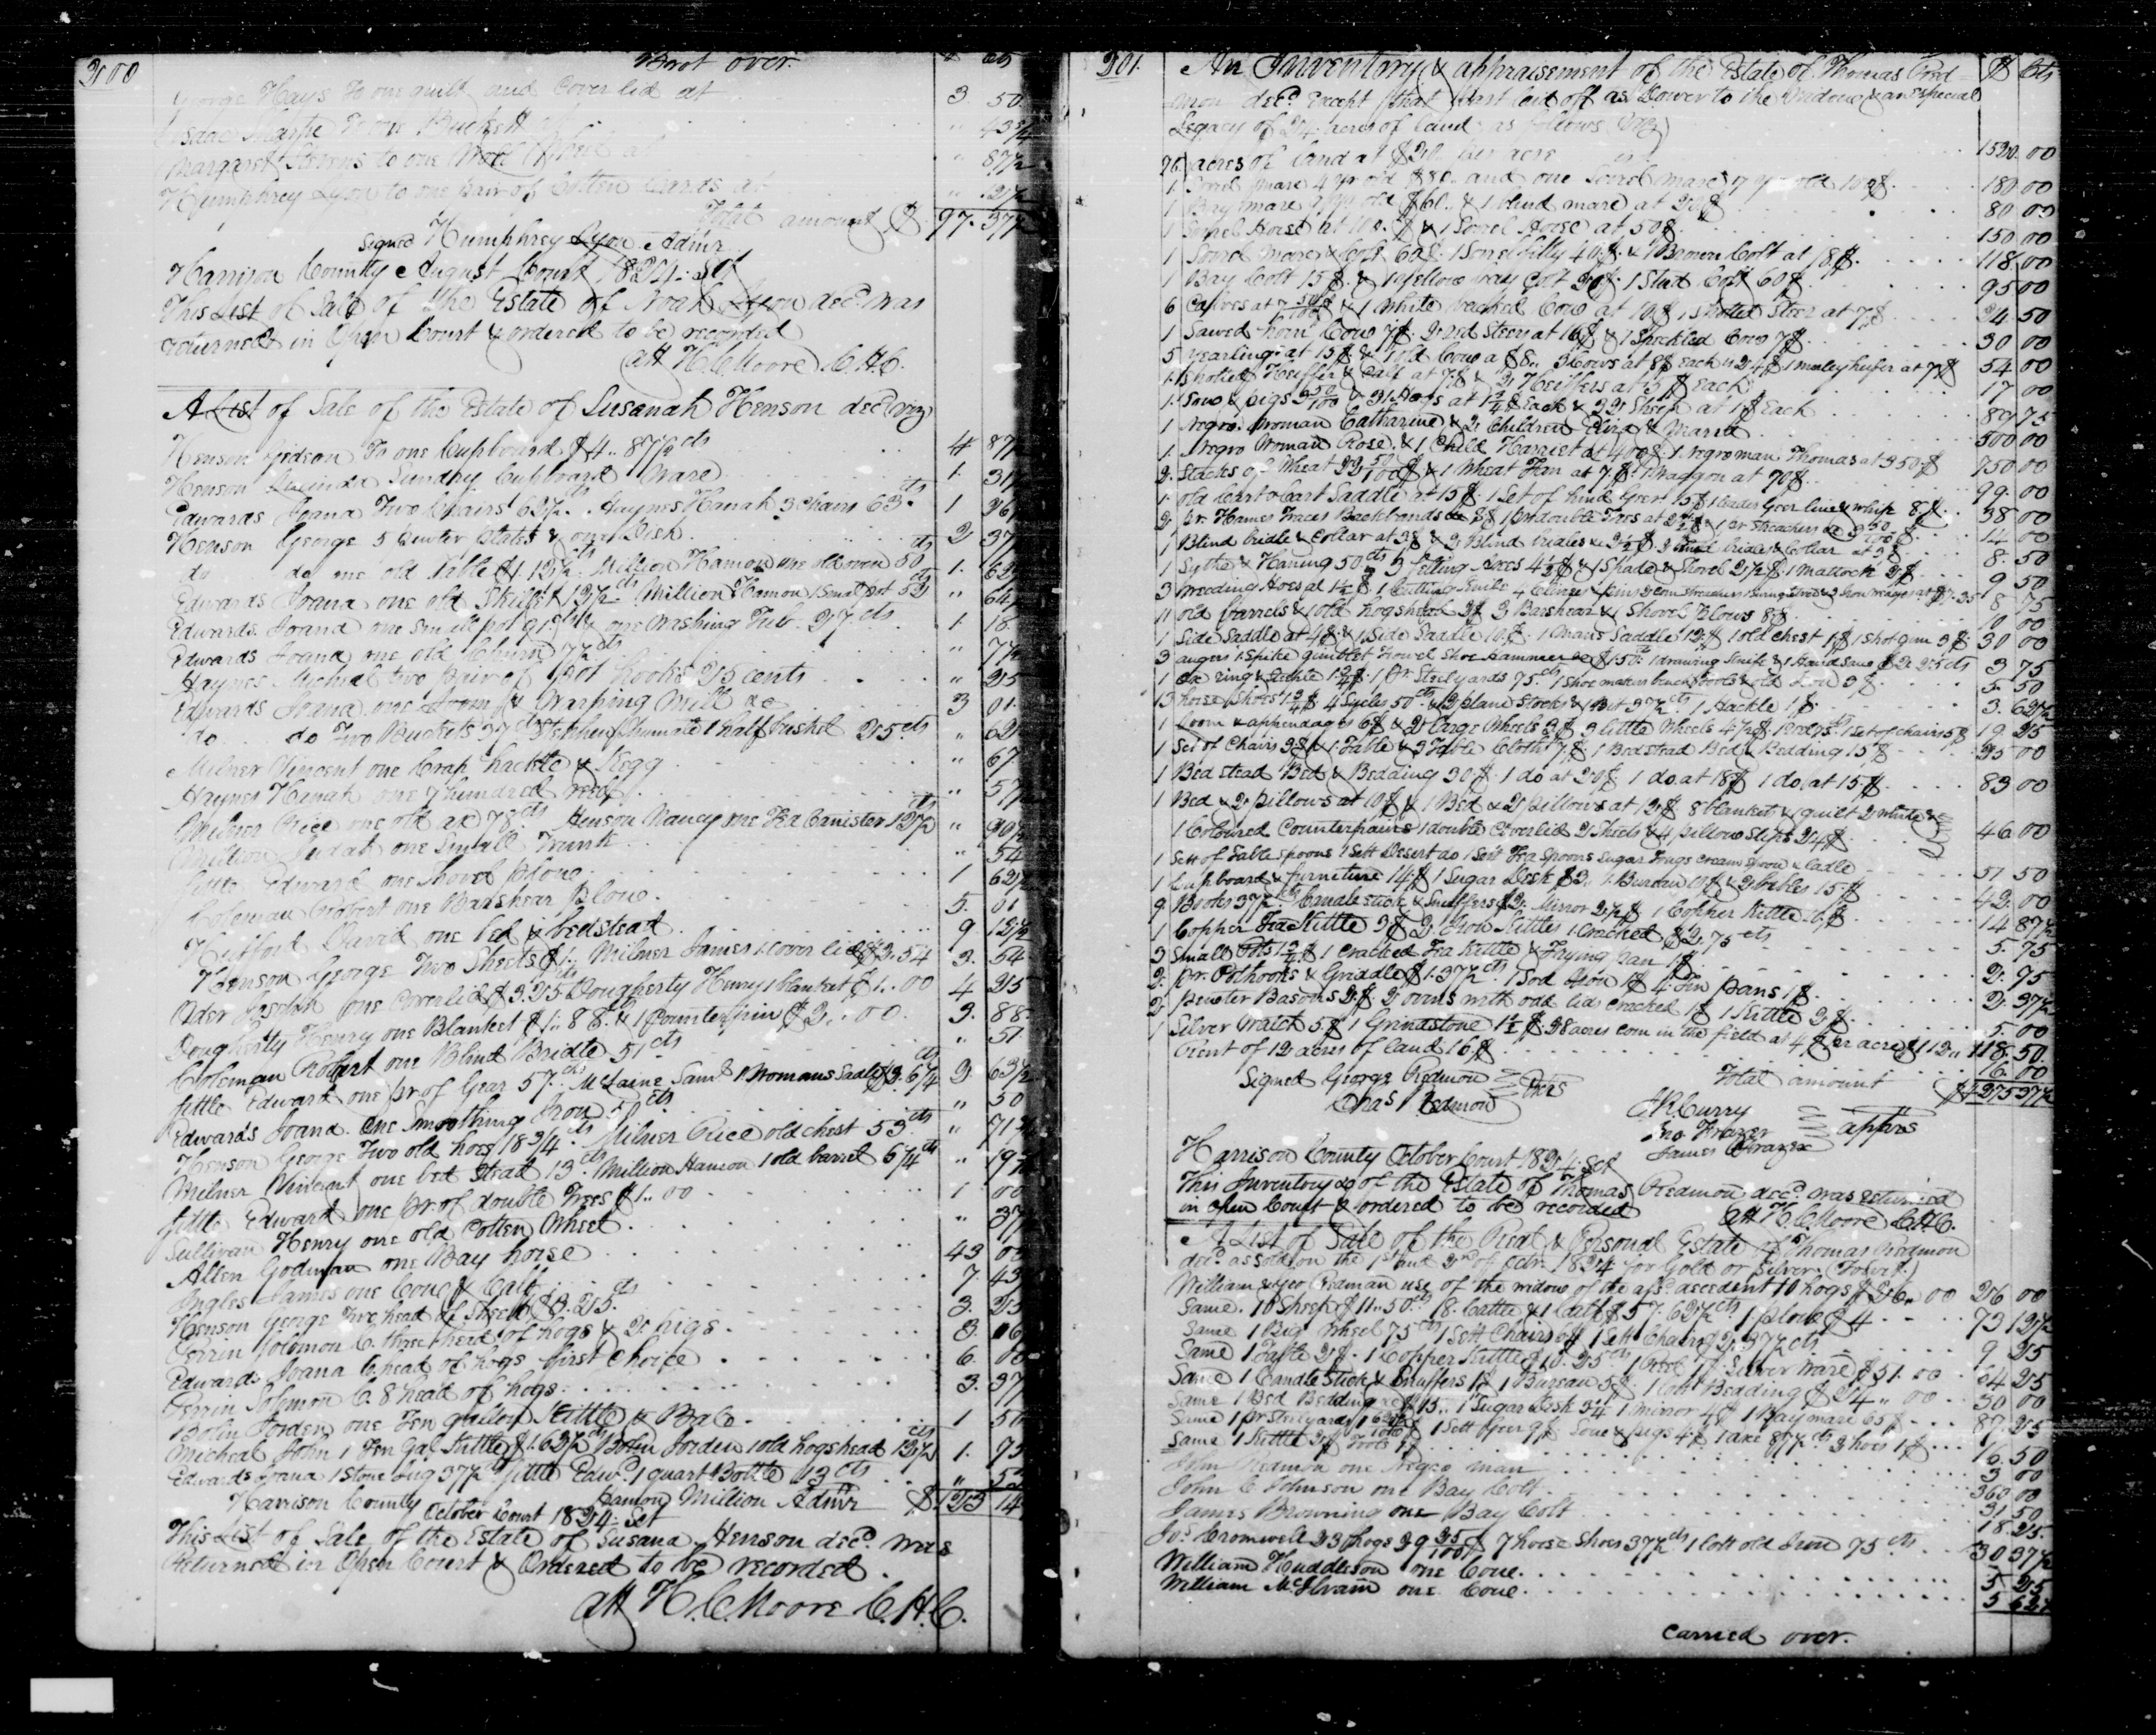 200
Brot over. $ cts
George Hays To one quilt and Coverlid at 3. 50
Isaac to one Buckett " 43 3/4
Margaret Stevens to one Wool Wheel at " 87 1/2
Humphrey Lyon to one pair of Cotten Cards at "
Total amount $ 97. 37 1/2
Signed Humphrey Lyon Admr
Harrison County August Court 1824. Sct
This List of Sale of the Estate of Noah Lyon decd was
returned in Open Court & ordered to be recorded
att H. C. Moore C.H.C.
A List of Sale of the Estate of Susanah Henson decd (Viz)
Henson Gideon To one Cupboard $4.. 87 1/2 cts 4 87 1/2
Henson Lucinda Sundry Cupboard Ware 1. 31
Edwards Joana Two Chairs 63 1/2. Haynes Hanah 3 Chairs 63 cts 1 26
Henson George 5 Pewter Plates & one Dish 2 37
do do one old Table $1.12 1/2 cts Million Hamon one old oven 50 cts 1. 62
Edwards Joana one old Skillet 12 1/2 cts Million Hamon 1 Small pot 52 cts " 64
Edwards Joana one small pot 91 cts & one Washing Tub 27 cts. 1. 18
Edwards Joana one old Churn 77 cts " 77
Haynes Micheal two pair of pot hooks 25 cents " 25
Edwards Joana one Loom & Warping Mill &c 3 01
do do Two Buckets 37 cts Stephen Shumate 1 half bushel 25 cts " 62
Milner Vincent one Crap hackle & Kegg " 67
Haynes Hanah one 7 hundred reed " 57
Milner Rice one old ax 78 cts Henson Nancy one Tea Canister 12 1/2 cts " 90 1/2
Million Judah one Small Trunk " 54
Settle Edward one Shovel plow 1 62 1/2
Coleman Robert one Barshear plow 5. 01
Hufford David one bed & bedstead 9 12 1/2
Henson George Two Sheets $1.. Milner James 1 Cover lid $2.54 3. 54
Oder Joseph one Coverlid $3.25 Dougherty Henry 1 blanket $1..00 4 25
Dougherty Henry one Blanket $1.. 88 cts & 1 Counterpin $2..00. 3. 88
Coleman Robert one Blind Bridle 51 cts " 51
Settle Edward one pr. of Gear 57 cts. McLaine Saml 1 Womans Sadle $2.6 1/4 cts 2 63 1/2
Edwards Joana. One Smoothing Iron 50 cts " 50
Henson George Two old hoes 18 3/4 cts. Milner Rice old chest 53 cts " 71 3/4
Milner Vincent one bed Stead 13 cts. Million Hamon 1 old barrel 6 1/4 cts " 19
Settle Edward one pr. of double Trees $1.. 00 1 00
Sullivan Henry one old Cotten Wheel " 37
Allen Godman one Bay horse 43 03
Ingles James one Cow & Calf 7. 43
Henson George Two head of Sheep $3.25 cts 3. 25
Perrin Solomon C. three head of hogs & 2 pigs 3. 06
Edwards Joana 6 head of hogs first Choice 6. 00
Perrin Solomon C. 8 head of hogs 3. 37
Bolin Jorden one Ten gallon Kettle & Bale 1 50
Micheal John 1 Ten Gal. Kettle $1.62 1/2 cts Bolin Jorden 1 old hogshead 12 1/2 cts 1. 75
Edwards Joana 1 Stone Jug 37 1/2 cts Settle Edwd. 1 quart Bottle 13 cts "
Hamon Million Admr $123 14
Harrison County October Court 1824. Sct
This List of Sale of the Estate of Susana Henson decd was
Returned in Open Court & Ordered to be recorded.
att H. C. Moore C.H.C.
201.
An Inventory & appraisement of the Estate of Thomas Red= $ Cts
mon decd. Except that part laid off as Dower to the Widow & an Especial
Legacy of 24 acres of land as follows (Viz)
76 acres of land at $20. per acre 1520. 00
1 Sorrel mare 4 yr old $80. and one Sorrel mare 7 yr old 100$ 180 00
1 Bay mare 9 yr old $60. & 1 blind mare at 20$ 80 00
1 Sorrel Horse at 100.$ & 1 Sorrel Horse at 50$ 150 00
1 Sorrel mare & Colt 60$. 1 Sorrel filly 40$. & 1 Brown Colt at 18$. 118 00
1 Bay Colt 15$. & 1 yellow bay Colt 20$. 1 Stud Colt 60$ 95 00
6 Calves at 7 50/100$ & 1 White backed Cow at 10$ 1 Spotted Steer at 7$ 24 50
1 Sawed horn Cow 7$. 2 red Steers at 16$ & 1 Speckled Cow 7$ 30 00
5 yearlings at 15$ & 1 old Cow a $8.. 3 Cows at 8$ each is 24$ 1 muley heifer at 7$ 54 00
1 Spotted Heiffer & Calf at 7$ & 2 Heiffers at 5$ Each 17 00
1 Sow & pigs 2 50/100 & 31 Hogs at Each & 22 Sheep at 1$ Each 89 75
1 Negro Woman Catharine & 2 Children Eliza & Maria 500 00
1 Negro Woman Rose & 1 Child Harriet at 400$. 1 negro man Thomas at 350$ 750 00
2 Stacks of Wheat 22 50/100$ & 1 Wheat Fan at 7$. 1 Waggon at 70$ 99. 00
1 old Cart & Cart Saddle at 15$. 1 Set of hind Geer 15$ 1 leader Geer line & whip 8.$ 38 00
2 pr. Hames Traces Backbands &c 8$ 1 pr double Trees at & 1 pr Streachers 14 00
1 Blind bridle & Collar at 3$ & 2 Blind bridles 2 1/2$. 2 Blind bridles & Collar at 3$ 8. 50
1 Sythe & Haning 50 cts 3 felling Axes 4 1/2$ & 1 Spade & Shovel 2 1/2$. 1 Mattock 2$ 9 50
3 weeding Hoes at 1 1/2$. 1 Cutting Knife 4 Clevises 8 75
11 old barrels & 1 old hogshead 2$ 3 Barshear & 1 Shovel Plows 8$ 10 00
1 Side Saddle at 4$. & 1 Side Saddle 10.$. 1 Mans Saddle 12.$ 1 old Chest 1$ 1 Shot gun 3$ 30 00
3 augers 1 Spike gimblet Trowel Shoe Hammer &c $1.50 cts 1 drawing Knife & 1 Hand Saw $2.25 cts 3 75
1 ox ring & Staple 1 pr. Steelyards 75 cts 1 Shoe makers bench tools & old Iron 3$ 5. 50
13 horse Shoes 4 Sycles 50 cts & 2 plane Stocks & 1 Bit 37 1/2 cts 1 Hackle 1$ 3. 62 1/2
1 Loom & appendages 6$ & 2 large Wheels 3$ 3 little Wheels 4 1/2$. 1 Set of chairs 5$ 19 25
1 Set of Chairs 3$ & 1 Table & 3 Table Cloths 7$. 1 Bedstead Bed & Bedding 15$ 25 00
1 Bed stead Bed & Bedding 30$. 1 do at 20$ 1 do. at 18$ 1 do. at 15$ 83 00
1 Bed & 2 pillows at 10$ & 1 Bed & 2 pillows at 12$ 8 blankets & 1 quilt 2 White &
1 Coloured Counterpains 1 double Coverlid 2 Sheets & 4 pillow Slips 24$ 46 00
1 Sett of Table spoons 1 Sett Desert do 1 Sett Tea Spoons Sugar Tongs cream spoon & Ladle 51 50
1 Cupboard & furneture 14$ 1 Sugar Desk $3. 1 Bureau 10$ & 2 tables 15.$ 42. 00
9 Books 37 1/2 cts Candlestick & Snuffers $2. Mirror 2 1/2$ 1 Copper Kettle 10$ 14 87 1/2
1 Copper Tea Kettle 3$ 2 Iron Kettles 1 Cracked $2.75 cts 5. 75
3 Small Pots 1 3/4$ 1 Cracked Tea Kettle & Frying pan 1$ 2. 75
2 pr. Pothooks & Griddle $1.37 1/2 cts 1 Sod Iron 1$ 4 Tin pans 1$ 2. 37 1/2
2 Pewter Basons 2.$. 2 ovens with odd lid cracked 1$ 1 Kettle 2$ 5. 00
1 Silver Watch 5$ 1 Grindstone 1 1/2$ 28 acres corn in the field at 4$ per acre $112.. 118. 50
Rent of 12 acres of land 16$ 16. 00
Total amount $4275 37 1/2
Signed George Redmon
Chas Redmon Exrs
J. R. Curry
Jno Frazer apprs
James Frazer
Harrison County October Court 1824. Sct
This Inventory &c of the Estate of Thomas Redmon decd. was returned
in open Court & ordered to be recorded att H. C. Moore C.H.C.
A List of Sale of the Real & Personal Estate of Thomas Redmon
decd. as sold on the 1st and 2nd of Octbr. 1824 for Gold or Silver. (To wit.)
William & Geo Redman use of the widow of the afsd. decedent 10 hogs $26..00 26 00
Same. 10 Sheep $11..50 cts 18. Cattle & 1 Calf $57.62 1/2 cts 1 plow $4 73 12 1/2
Same 1 Big Wheel 75 cts 1 Sett Chairs 6$ 1 Sett Chairs $2.37 1/2 cts 9 25
Same 1 Table 2$. 1 Copper Kettle $10.25 cts 1 Sett of Silver Ware $51.00 64 25
Same 1 Candle Stick & Snuffers 1$ 1 Bureau 5$. 1 Cott Bedding $24..00 30 00
Same 1 Bed Bedding &c $15.. 1 Sugar Desk 1 Mirror 4$ 1 Bay mare 65$ 87. 25
Same 1 pr Steelyards 1 Sett Geer 9$ Sow & pigs 4$ 1 axe 87 1/2 cts 2 hoes 1$ 16. 50
Same 1 Kettle 2$ Tools 1$ 3 00
John Redmon one Negro man 360 00
John C Johnson one Bay Colt 31 50
James Browning one Bay Colt 18. 25
Js. Cromwell 23 hogs 29 25/100$ 7 horse Shoes 37 1/2 cts 1 lott old Iron 75 cts 30 37 1/2
William Huddleson one Cow 5 25
William McIlvain one Cow 5 62 1/2
carried over.